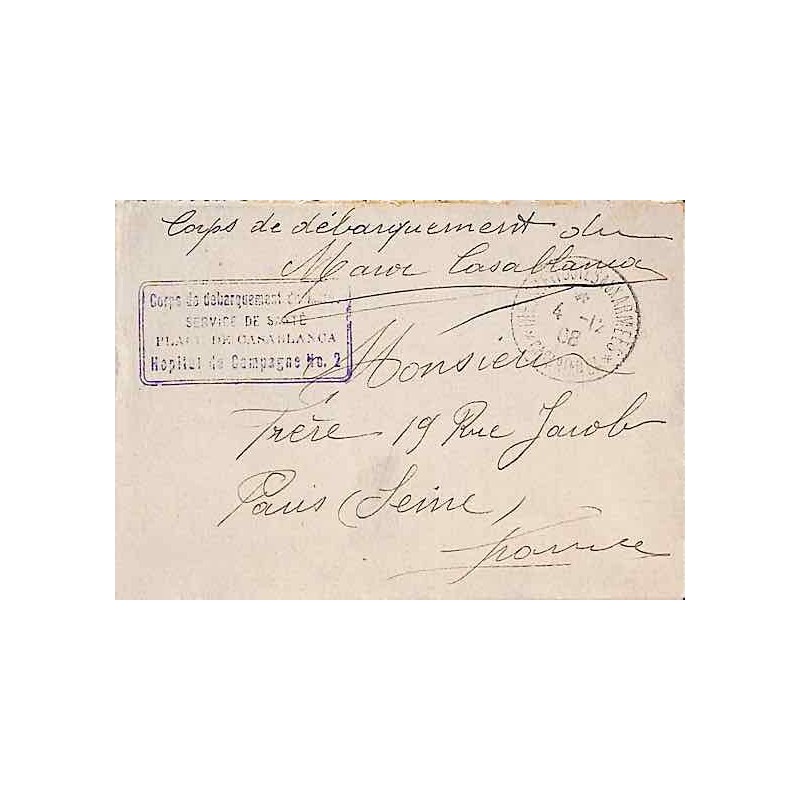 Corps de débarquement du
Maroc Casablanca
Corps de débarquement du
SERVICE DE SANTÉ
PLACE DE CASABLANCA
Hopital de Campagne No. 2
AUX ARMEES
4 -12
08
Monsieur
Frère 19 Rue Jacob
Paris (Seine)
France